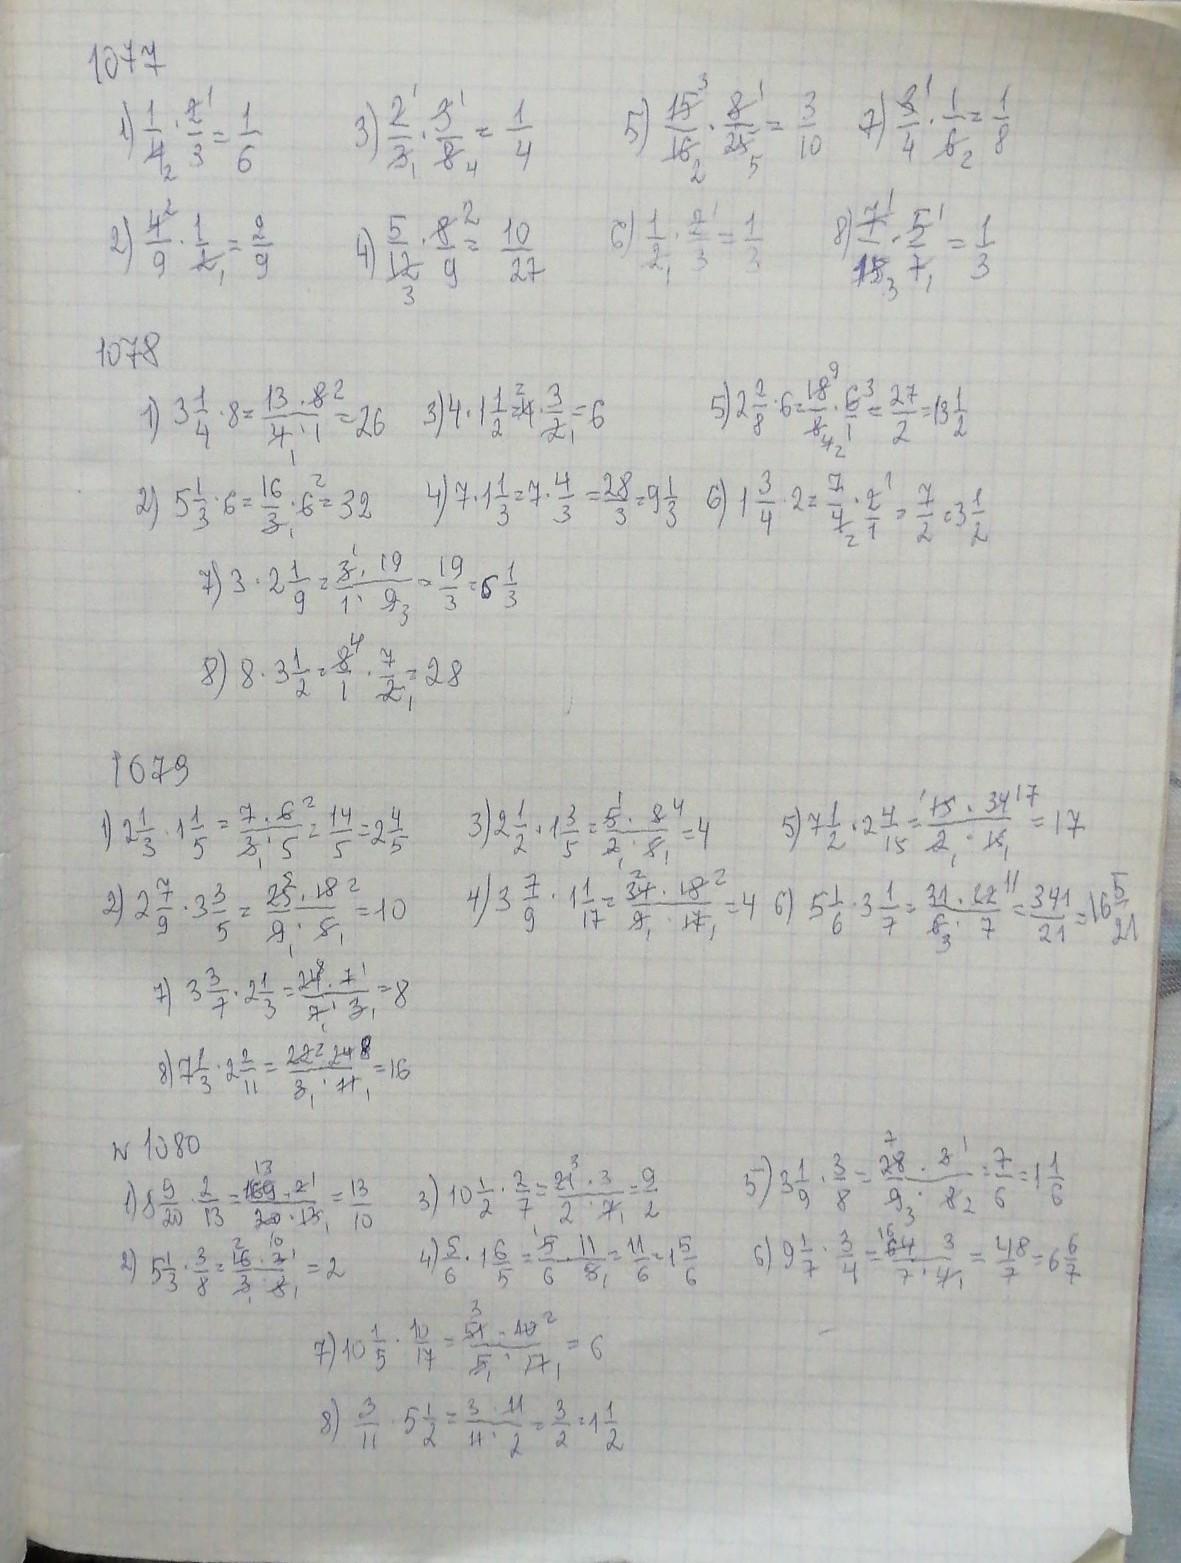 1077
1) 1/4 · 2/3 = 1/6   3) 2/3 · 3/8 = 1/4   5) 15/16 · 8/25 = 3/10   7) 3/4 · 1/6 = 1/8
2) 4/9 · 1/2 = 2/9   4) 5/12 · 8/9 = 10/27   6) 1/2 · 2/3 = 1/3   8) 7/15 · 5/7 = 1/3
1078
1) 3 1/4 · 8 = 13·8/4·1 = 26   3) 4 · 1 1/2 = 4 · 3/2 = 6   5) 2 2/8 · 6 = 18/8 · 6/1 = 27/2 = 13 1/2
2) 5 1/3 · 6 = 16/3 · 6 = 32   4) 7 · 1 1/3 = 7 · 4/3 = 28/3 = 9 1/3   6) 1 3/4 · 2 = 7/4 · 2/1 = 7/2 = 3 1/2
7) 3 · 2 1/9 = 3·19/1·9 = 19/3 = 6 1/3
8) 8 · 3 1/2 = 8/1 · 7/2 = 28
1679
1) 2 1/3 · 1 1/5 = 7·6/3·5 = 14/5 = 2 4/5   3) 2 1/2 · 1 3/5 = 5·8/2·5 = 4   5) 7 1/2 · 2 4/15 = 15·34/2·15 = 17
2) 2 7/9 · 3 3/5 = 25·18/9·5 = 10   4) 3 7/9 · 1 1/17 = 34·18/9·17 = 4   6) 5 1/6 · 3 1/7 = 31·22/6·7 = 341/21 = 16 5/21
7) 3 3/7 · 2 1/3 = 24·7/7·3 = 8
8) 7 1/3 · 2 2/11 = 22·24/3·11 = 16
N 1080
1) 8 9/20 · 2/13 = 169·2/20·13 = 13/10   3) 10 1/2 · 2/7 = 21·3/2·7 = 9/2   5) 3 1/9 · 3/8 = 28·3/9·8 = 7/6 = 1 1/6
2) 5 1/3 · 3/8 = 16·3/3·8 = 2   4) 5/6 · 1 6/5 = 5·11/6·5 = 11/6 = 1 5/6   6) 9 1/7 · 3/4 = 64·3/7·4 = 48/7 = 6 6/7
7) 10 1/5 · 10/17 = 51·10/5·17 = 6
8) 3/11 · 5 1/2 = 3·11/11·2 = 3/2 = 1 1/2